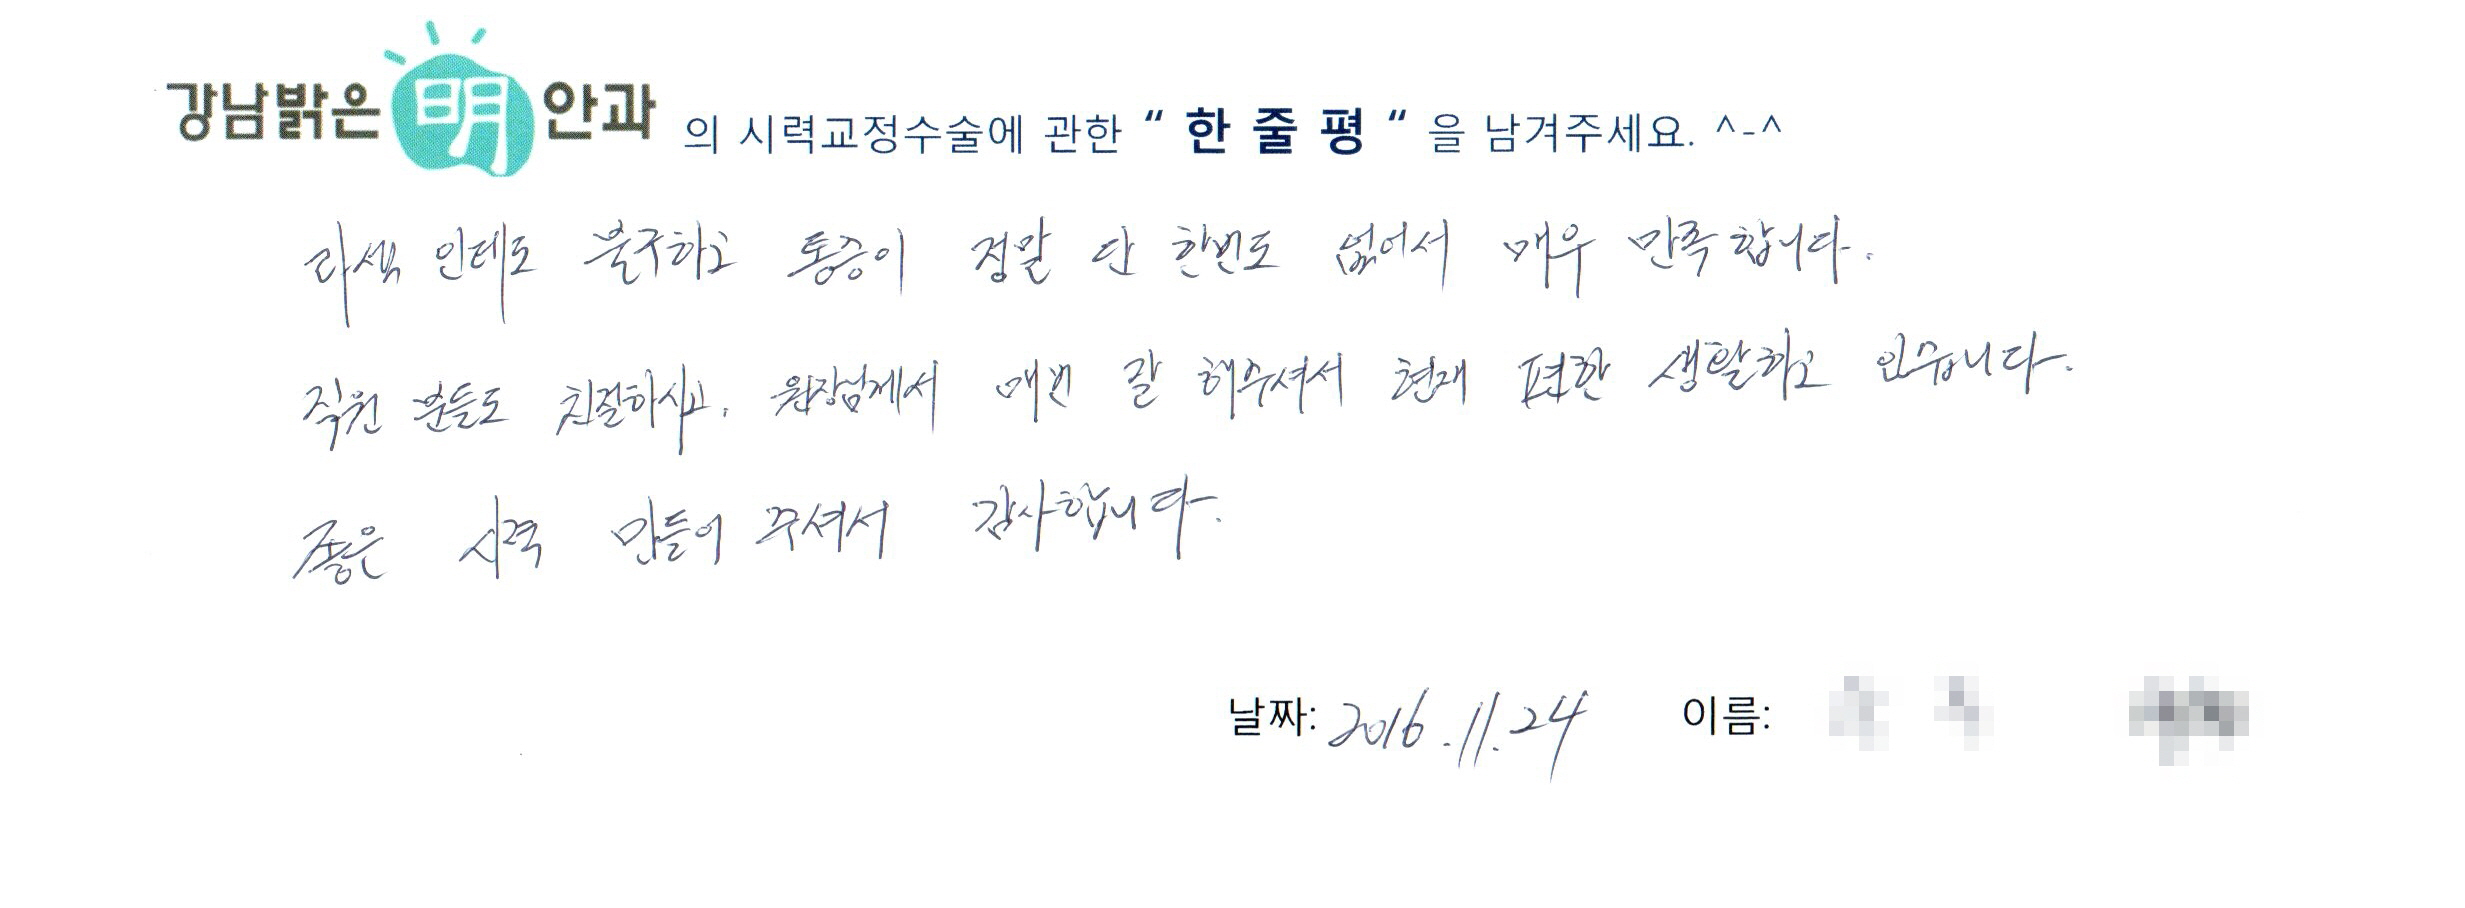 강남밝은 明 안과 의 시력교정수술에 관한 “ 한 줄 평 “ 을 남겨주세요. ^-^
라섹 인데도 불구하고 통증이 정말 단 한번도 없어서 매우 만족합니다.
직원 분들도 친절하시고, 원장님께서 매번 잘 해주셔서 현재 편한 생활하고 있습니다.
좋은 시력 만들어 주셔서 감사합니다.
날짜: 2016.11.24 이름: